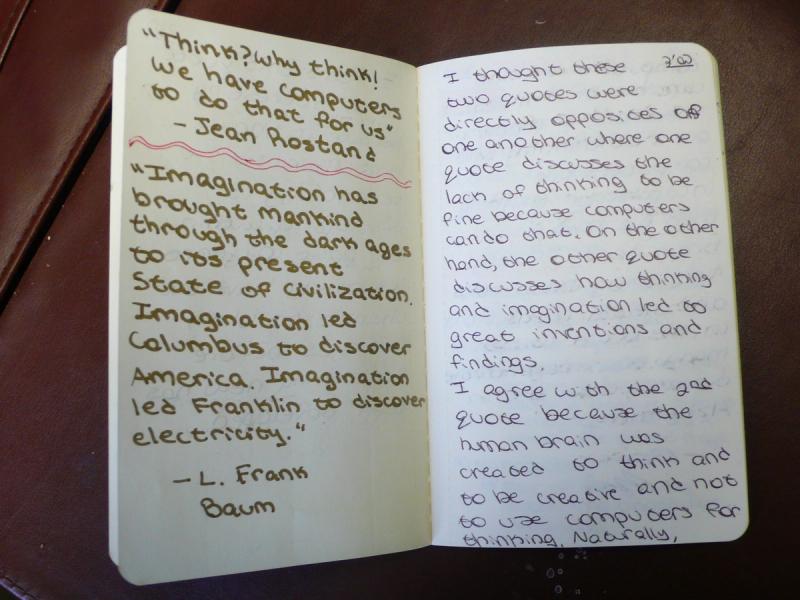 "Think? Why think!
We have computers
to do that for us"
- Jean Rostand
"Imagination has
brought mankind
through the dark ages
to its present
State of civilization.
Imagination led
Columbus to discover
America. Imagination
led Franklin to discover
electricity."
- L. Frank
Baum
I thought these
two quotes were
directly opposites of
one another where one
quote discusses the
lack of thinking to be
fine because computers
can do that. On the other
hand, the other quote
discusses how thinking
and imagination led to
great inventions and
findings.
I agree with the 2nd
quote because the
human brain was
created to think and
to be creative and not
to use computers for
thinking. Naturally,